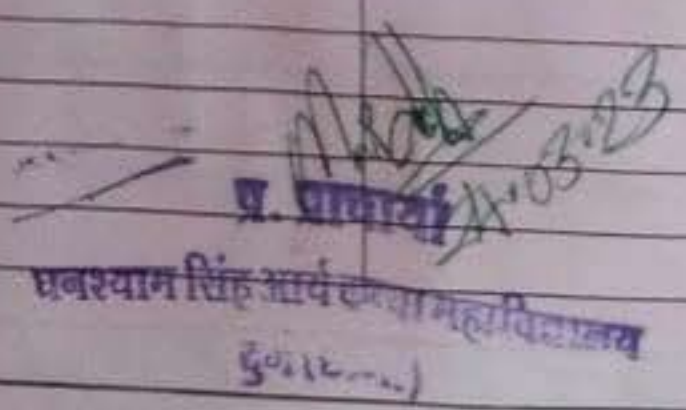 21.03.23
प्र. प्राचार्या
घनश्याम सिंह आर्य कन्या महाविद्यालय